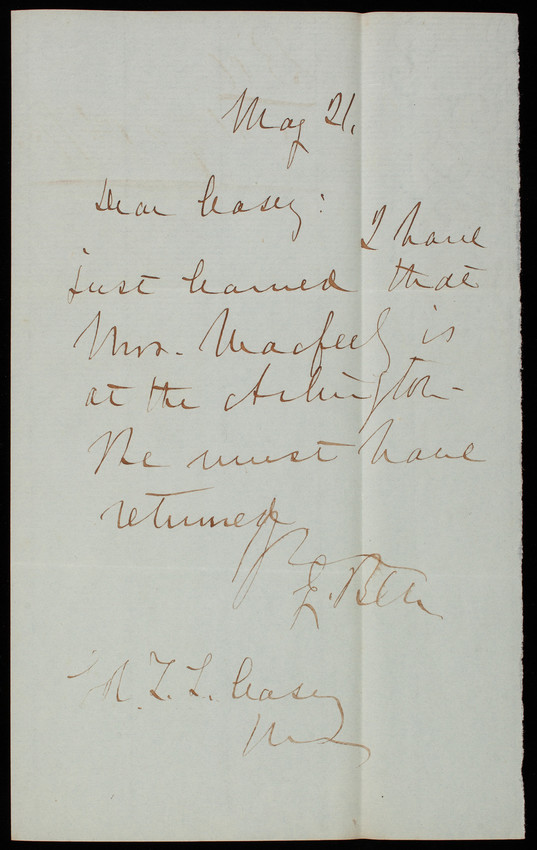 May 21.
Dear Casey:
I have
just learned that
Mrs. Macfeely is
at the Arlington –
She must have
returned
T. L. Casey